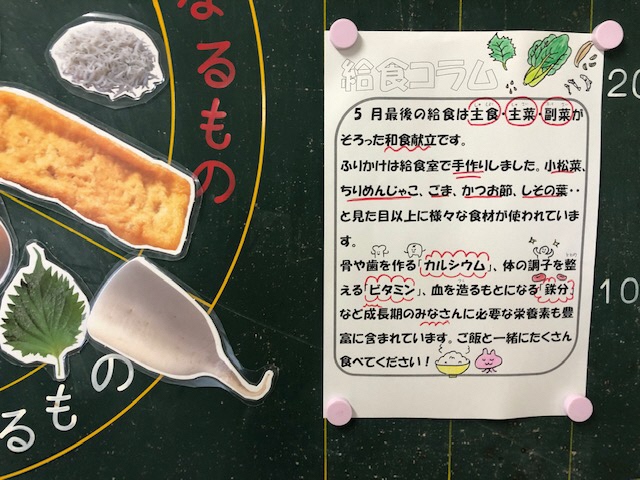 なるもの
るもの
20
10
給食コラム
5月最後の給食は主食・主菜・副菜が
そろった和食献立です。
ふりかけは給食室で手作りしました。小松菜、
ちりめんじゃこ、ごま、かつお節、しその葉・・
と見た目以上に様々な食材が使われていま
す。
骨や歯を作る「カルシウム」、体の調子を整
える「ビタミン」、血を造るもとになる「鉄分」
など成長期のみなさんに必要な栄養素も豊
富に含まれています。ご飯と一緒にたくさん
食べてください！